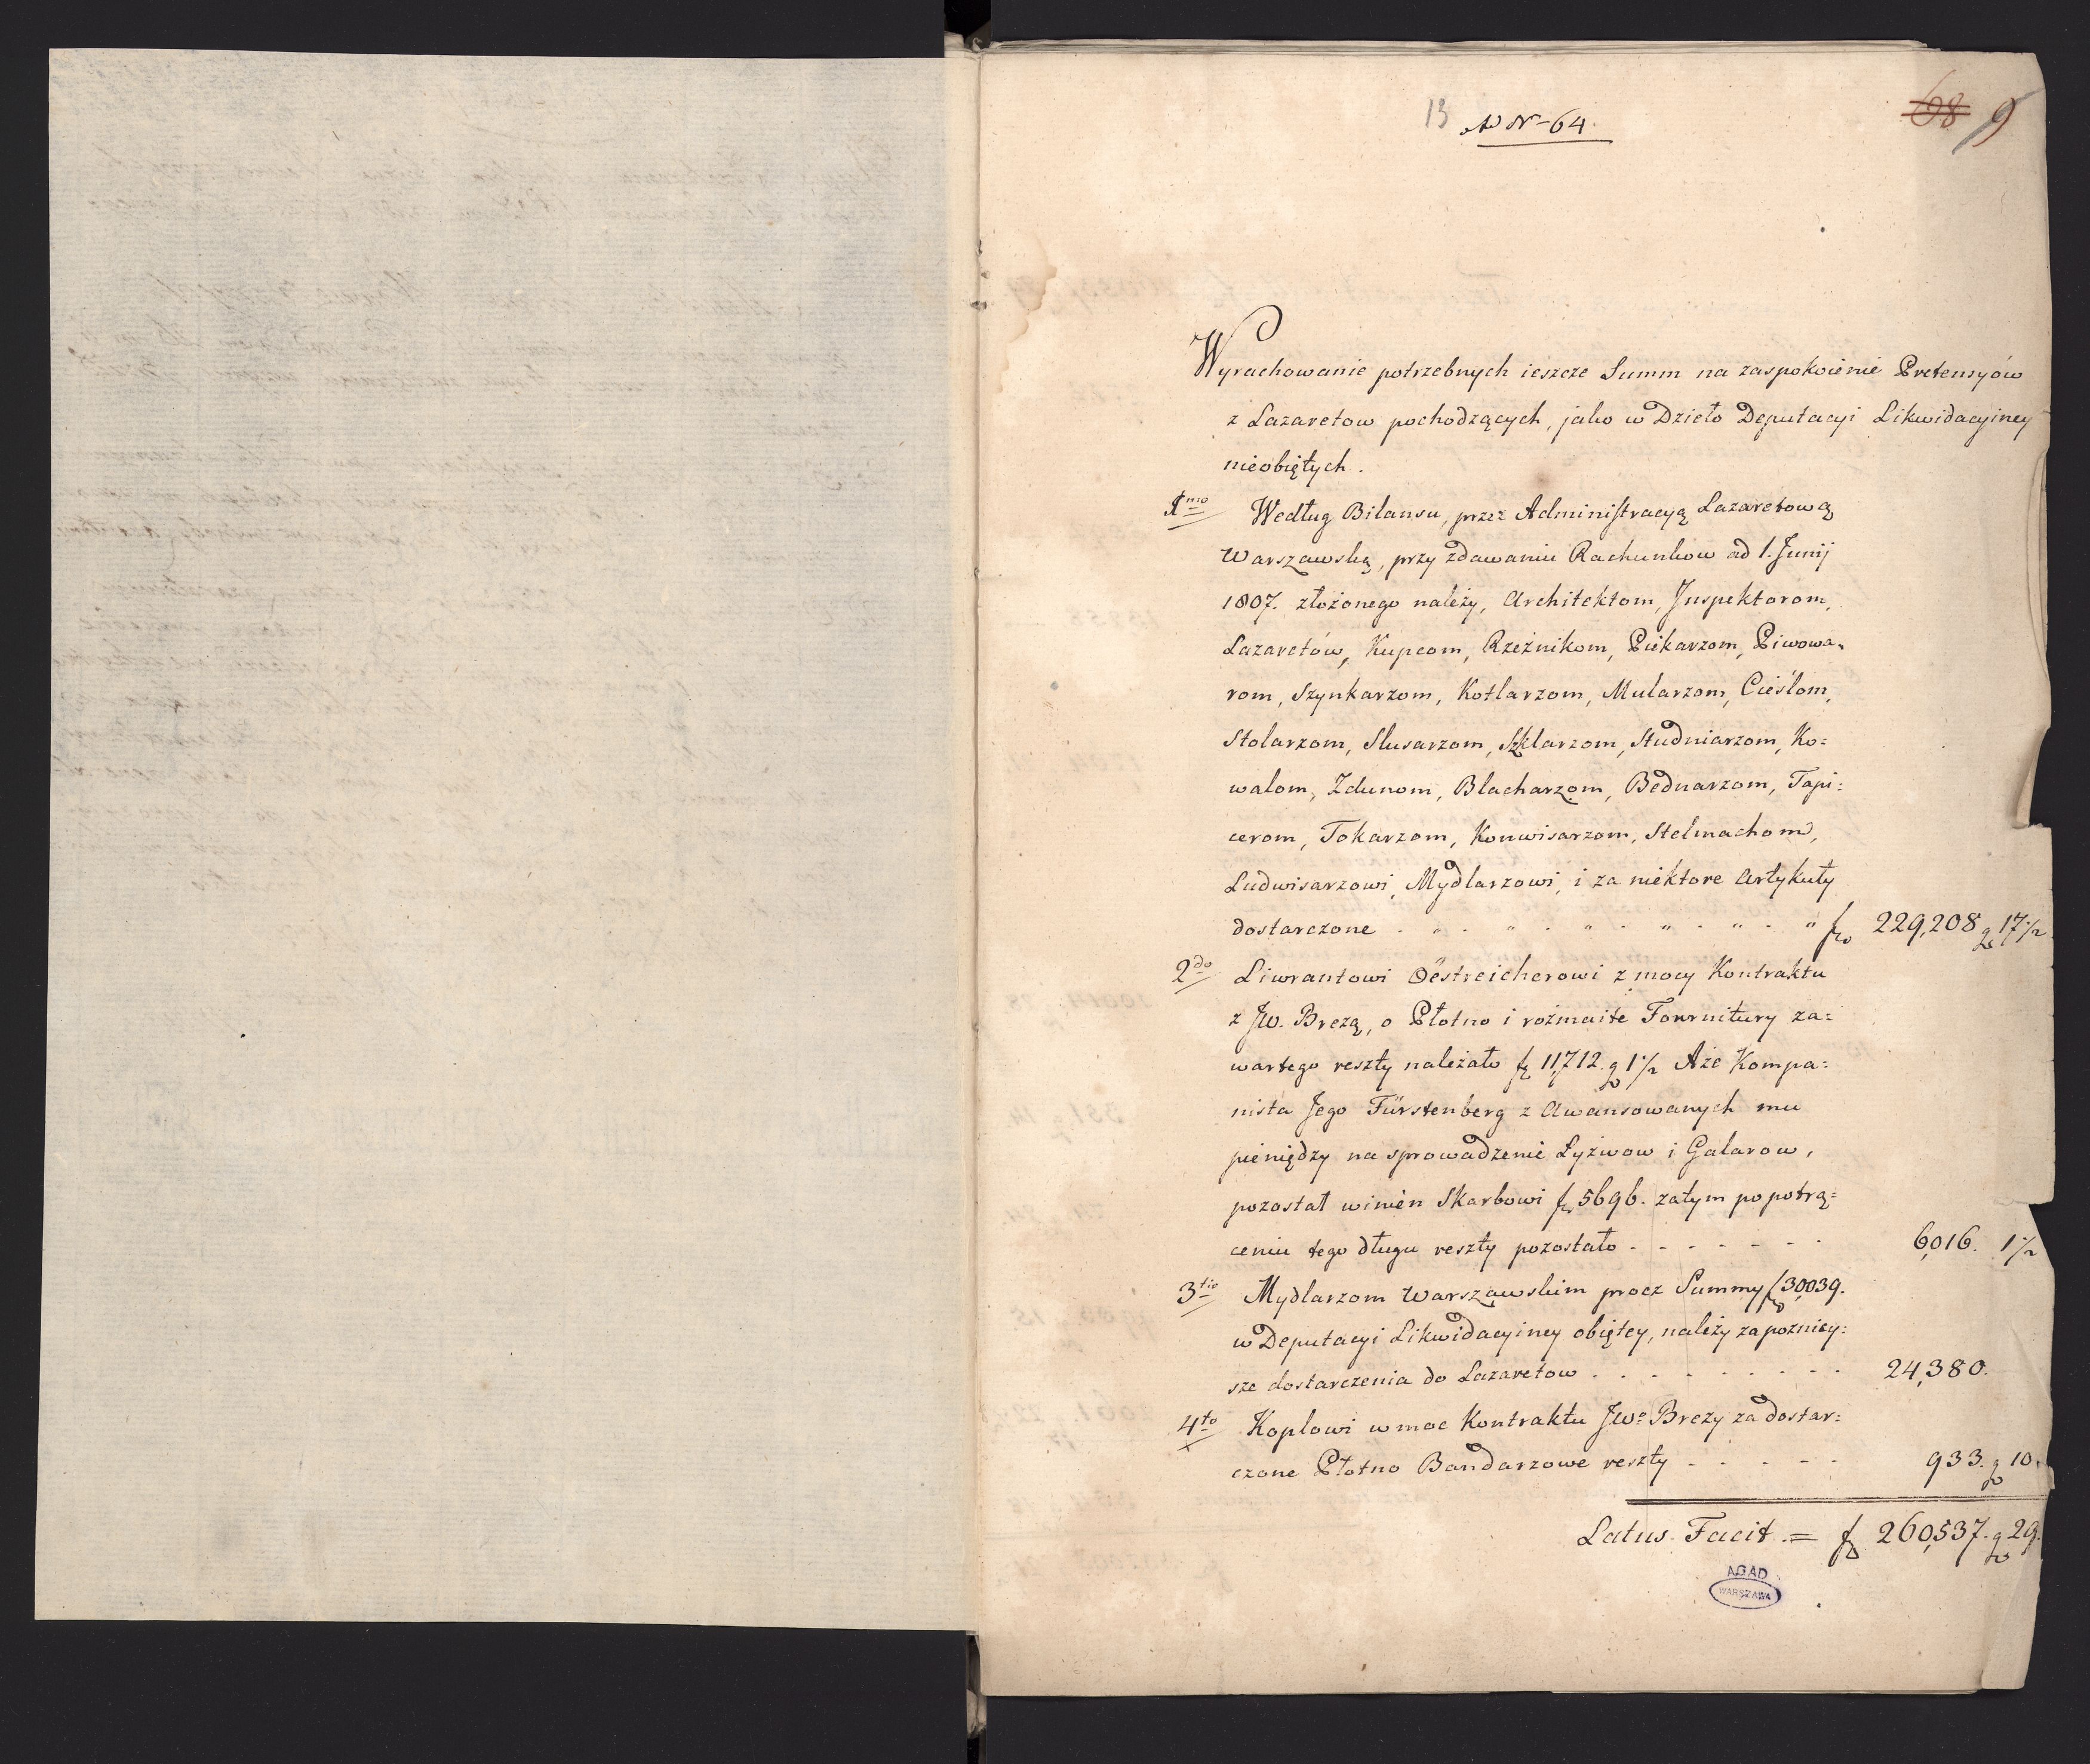 13 ad N-64.
68 9
Wyrachowanie potrzebnych ieszcze Summ na zaspokoienie Pretensyów
z Lazaretow pochodzących, jako w Dzieło Deputacyi Likwidacyiney
nieobiętych.
1mo Według Bilansu, przez Administracyą Lazaretową
Warszawską, przy zdawaniu Rachunkow ad 1. Junij
1807. złożonego należy, Architektom, Inspektorom,
Lazaretów, Kupcom, Rzeźnikom, Piekarzom, Piwowa=
rom, Szynkarzom, Kotlarzom, Mularzom, Cieślom,
Stolarzom, Slusarzom, Szklarzom, Studniarzom, Ko=
walom, Zdunom, Blacharzom, Bednarzom, Tapi=
cerom, Tokarzom, Konwisarzom, Stelmachom,
Ludwisarzowi, Mydlarzowi, i za niektore Artykuły
dostarczone - " - " - " - " - " - " f 229,208 g 17 1/2
2do Liwrantowi Oestreicherowi z mocy Kontraktu
z JW. Brezą, o Płotno i rożmaite Fournitury za=
wartego reszty należało f 11,712. g 1 1/2 Aże Kompa=
nista Jego Fürstenberg z Awansowanych mu
pieniędzy na sprowadzenie Łyżwow i Galarow,
pozostał winien Skarbowi f 5696. zatym po potrą=
ceniu tego długu reszty pozostało - - - - - - - 6,016. 1 1/2
3tio Mydlarzom Warszawskim procz Summy f 30,039.
w Deputacyi Likwidacyiney obiętey, należy za pozniey=
sze dostarczenia do Lazaretow . - - - - - - - 24,380.
4to Koplowi w moc Kontraktu JWo Brezy za dostar=
czone Płotno Bandarzowe reszty - - - - - 933. g 10.
Latus Facit = f 260,537. g 29.
AGAD
WARSZAWA